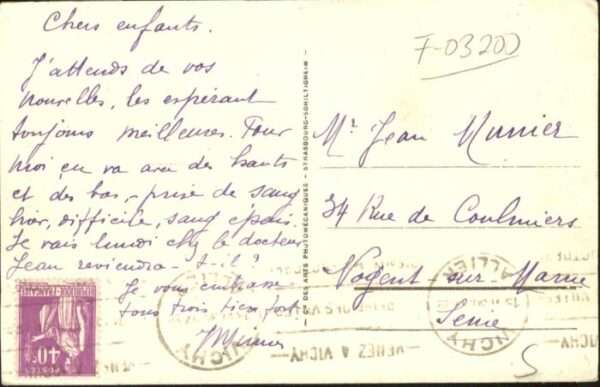 Chers enfants.
J'attends de vos
nouvelles, les espérant
toujours meilleures. Pour
moi ça va avec des hauts
et des bas, - prise de sang
hier, difficile, sang épais.
Je vais lundi chez le docteur
Jean reviendra-t-il ?
Je vous embrasse
tous trois bien fort
F-03200
Mr Jean Munier
34 Rue de Coulmiers
Nogent sur Marne
Seine
CIE DES ARTS PHOTOMÉCANIQUES - STRASBOURG-SCHILTIGHEIM
VENEZ A VICHY
VICHY
ALLIER
POSTES
40c
5